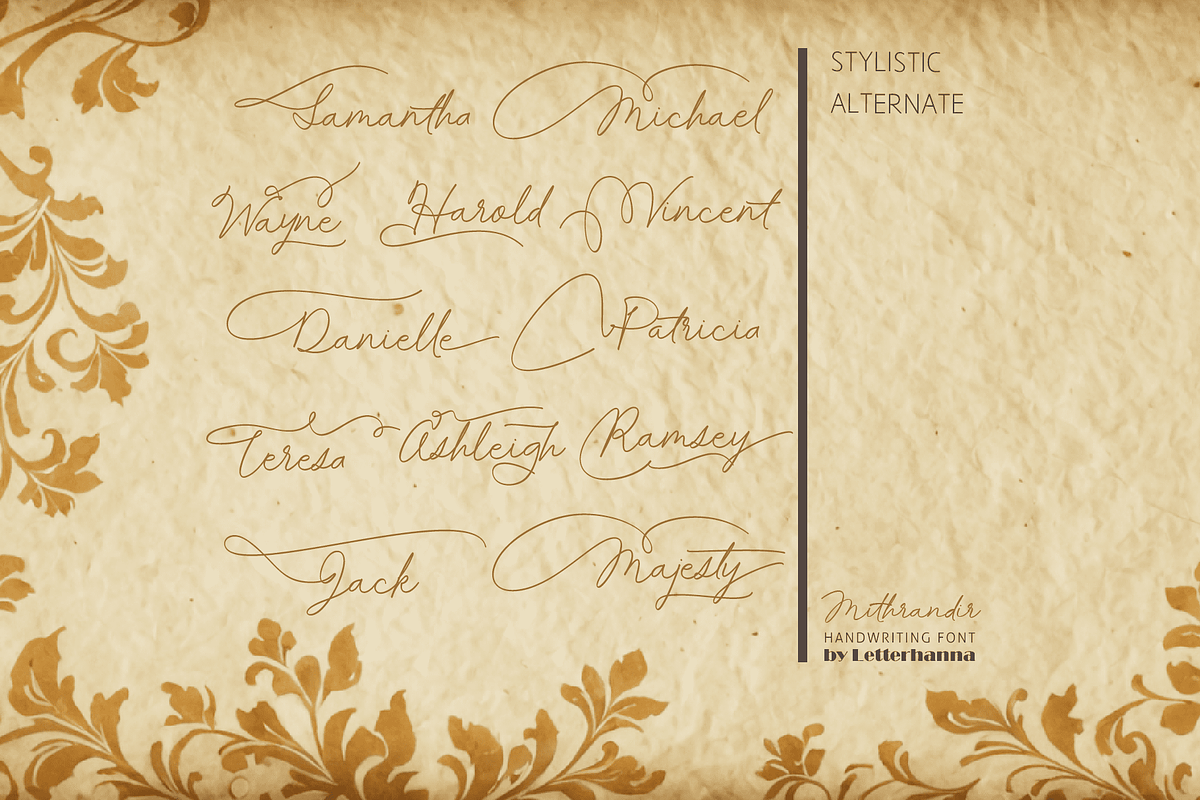 Samantha Michael
Wayne Harold Vincent
Danielle Patricia
Teresa Ashleigh Ramsey
Jack Majesty
STYLISTIC
ALTERNATE
Mithrandir
HANDWRITING FONT
by Letterhanna